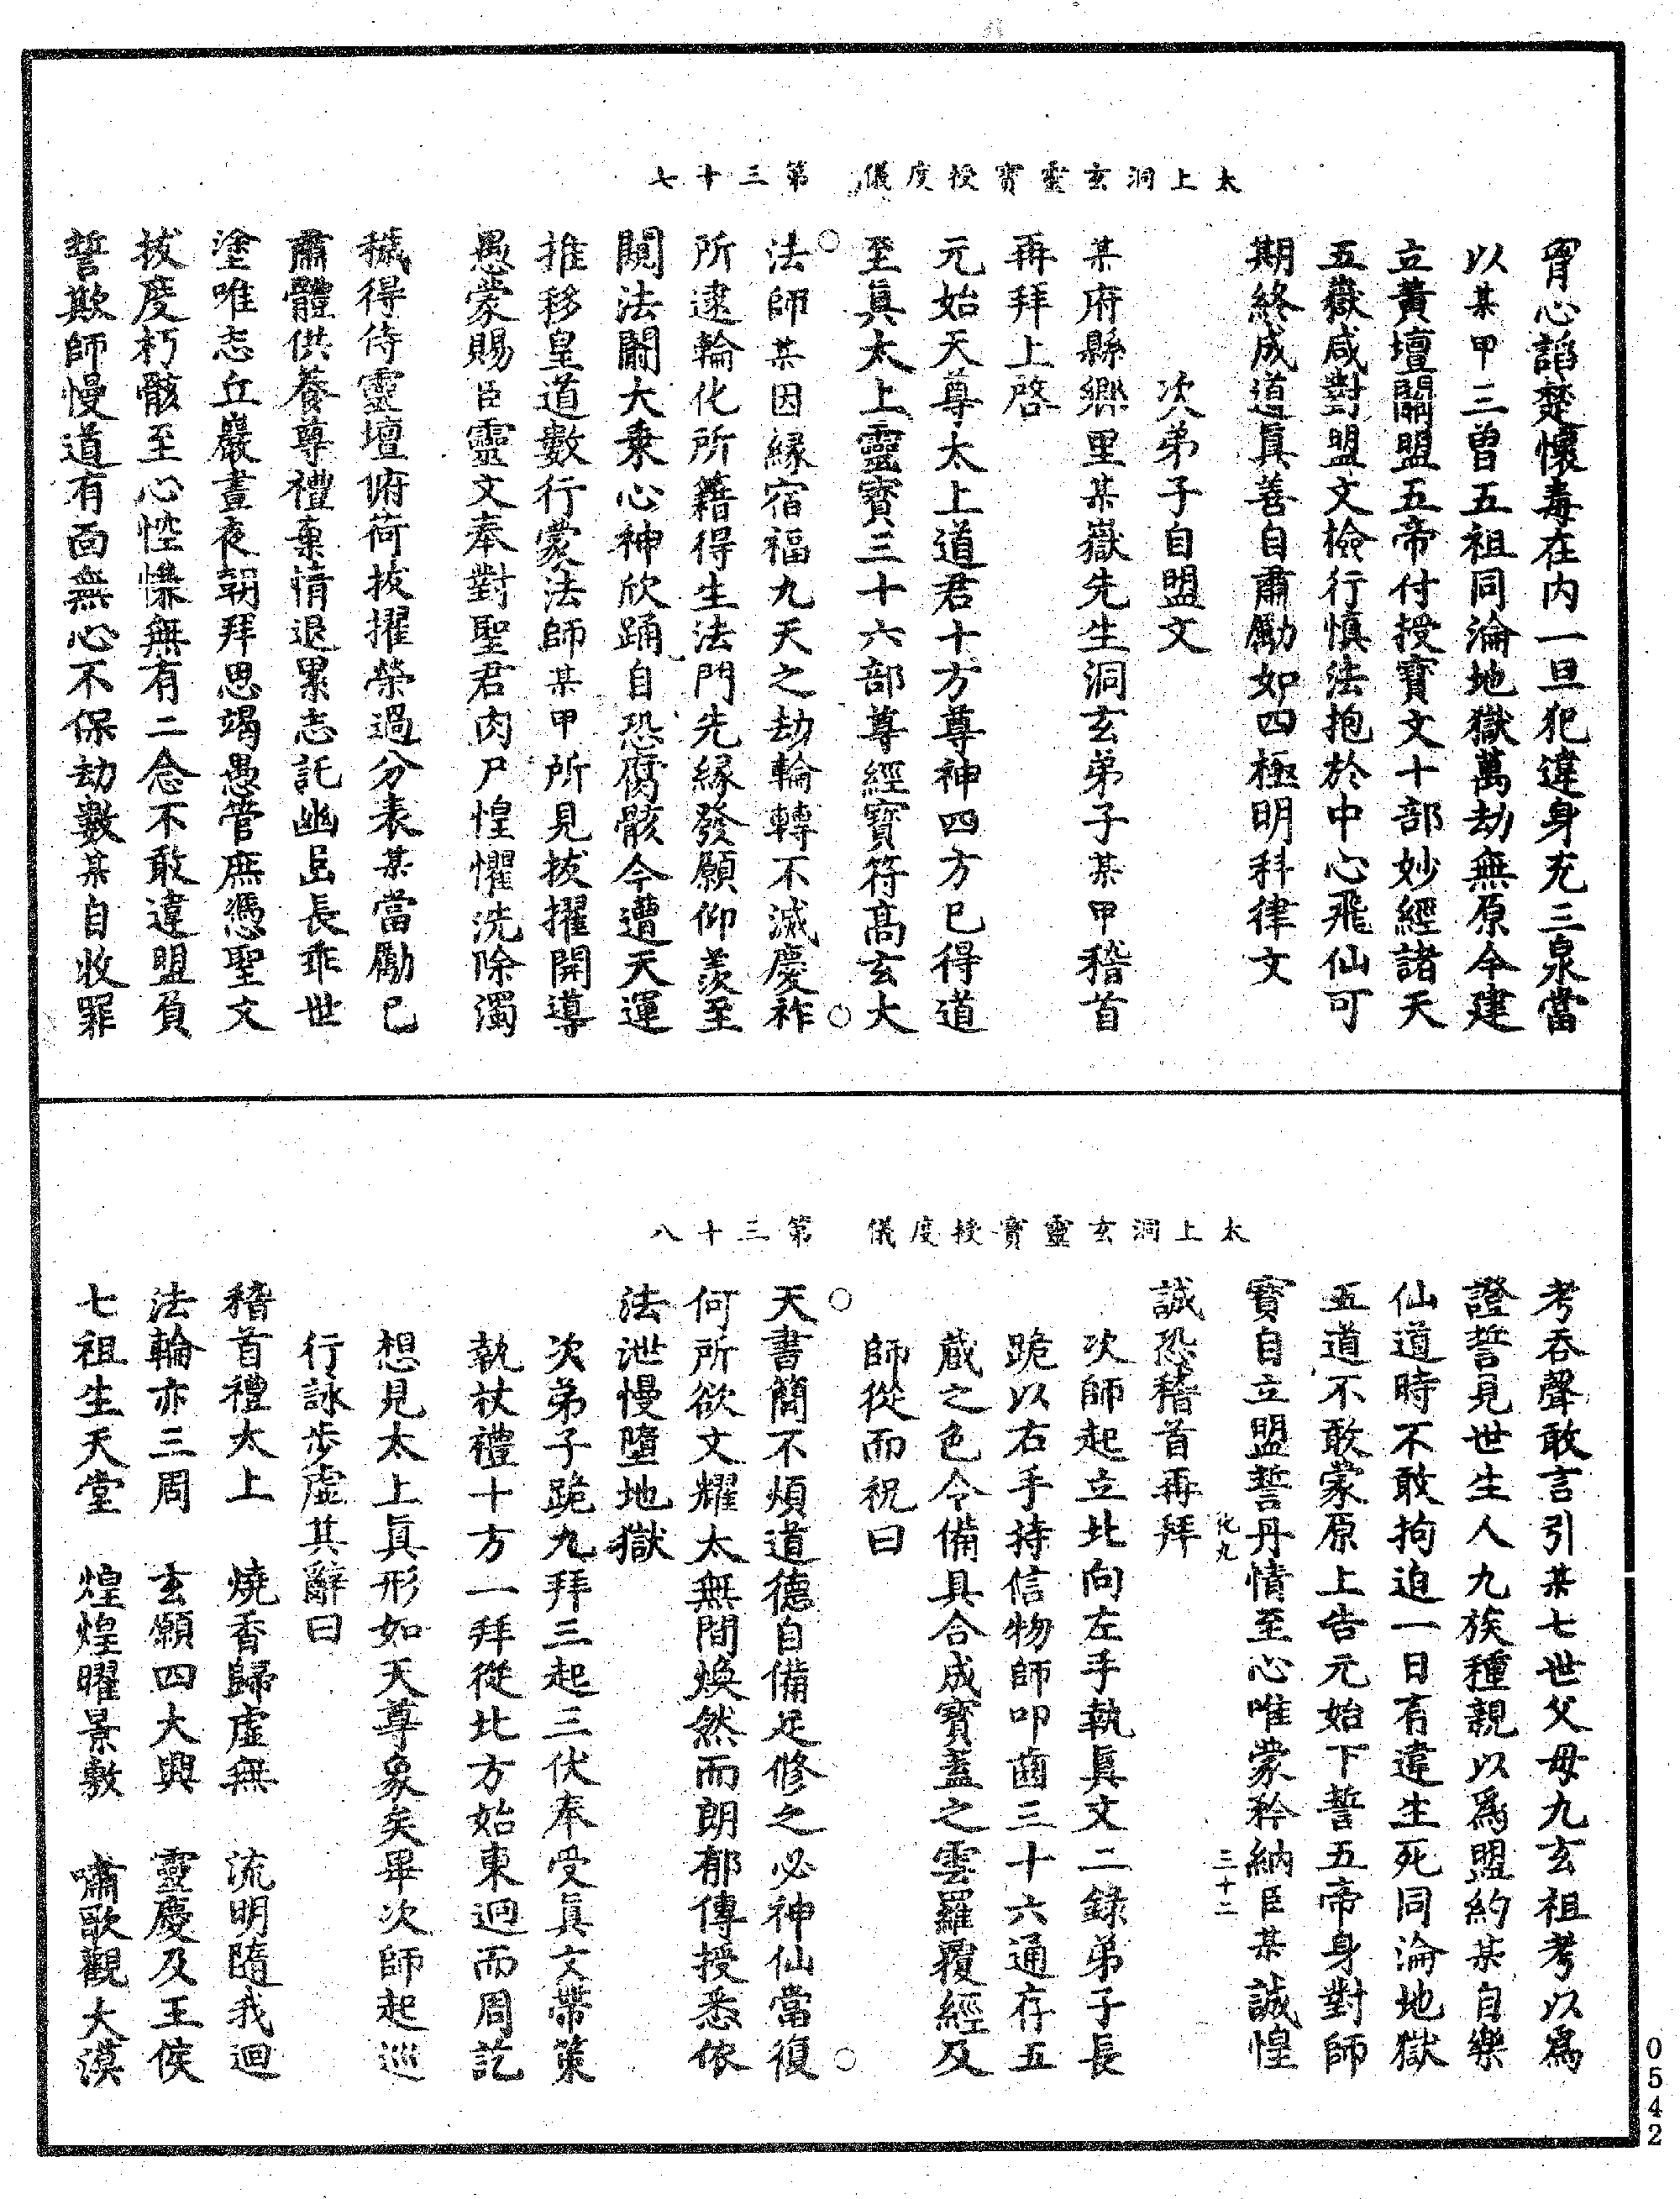 太上洞玄靈寶授度儀　第三十七
胷心謟楚懷毒在内一旦犯違身充三泉當
以某甲三曾五祖同淪地獄萬劫無原今建
立黃壇關盟五帝付授寶文十部妙經諸天
五嶽咸對盟文檢行慎法抱於中心飛仙可
期終成道眞善自肅勵如四極明科律文
次弟子自盟文
某府縣鄉里某嶽先生洞玄弟子某甲稽首
再拜上啓
元始天尊太上道君十方尊神四方已得道
至眞太上靈寶三十六部尊經寶符高玄大
法師某因緣宿福九天之劫輪轉不滅慶祚
所逮輪化所籍得生法門先緣發願仰羨至
闥法關大乘心神欣踊自恐腐骸今遭天運
推移皇道數行蒙法師某甲所見拔擢開導
愚蒙賜臣靈文奉對聖君肉尸惶懼洗除濁
穢得侍靈壇俯荷拔擢榮過分表某當勵已
肅體供養尊禮棄情退累志託幽岳長乖世
塗唯志丘巖晝夜朝拜思竭愚管庶憑聖文
拔度朽骸至心悾慊無有二念不敢違盟負
誓欺師慢道有面無心不保劫數某自收罪
太上洞玄靈寶授度儀　第三十八
考吞聲敢言引某七世父母九玄祖考以爲
證誓見世生人九族種親以爲盟約某自樂
仙道時不敢拘迫一日有違生死同淪地獄
五道不敢蒙原上告元始下誓五帝身對師
寶自立盟誓丹情至心唯蒙矜納臣某誠惶
化九　三十二
誠恐稽首再拜
次師起立北向左手執眞文二錄弟子長
跪以右手持信物師叩齒三十六通存五
藏之色令備具合成寶蓋之雲羅覆經及
師從而祝曰
天書簡不煩道德自備足修之必神仙當復
何所欲文耀太無間煥然而朗郁傳授悉依
法泄慢墮地獄
次弟子跪九拜三起三伏奉受眞文帶策
執杖禮十方一拜從北方始東迴而周訖
想見太上眞形如天尊象矣畢次師起巡
行詠步虛其辭曰
稽首禮太上　燒香歸虛無　流明隨我迴
法輪亦三周　玄願四大興　靈慶及王侯
七祖生天堂　煌煌曜景敷　嘯歌觀大漠
0542